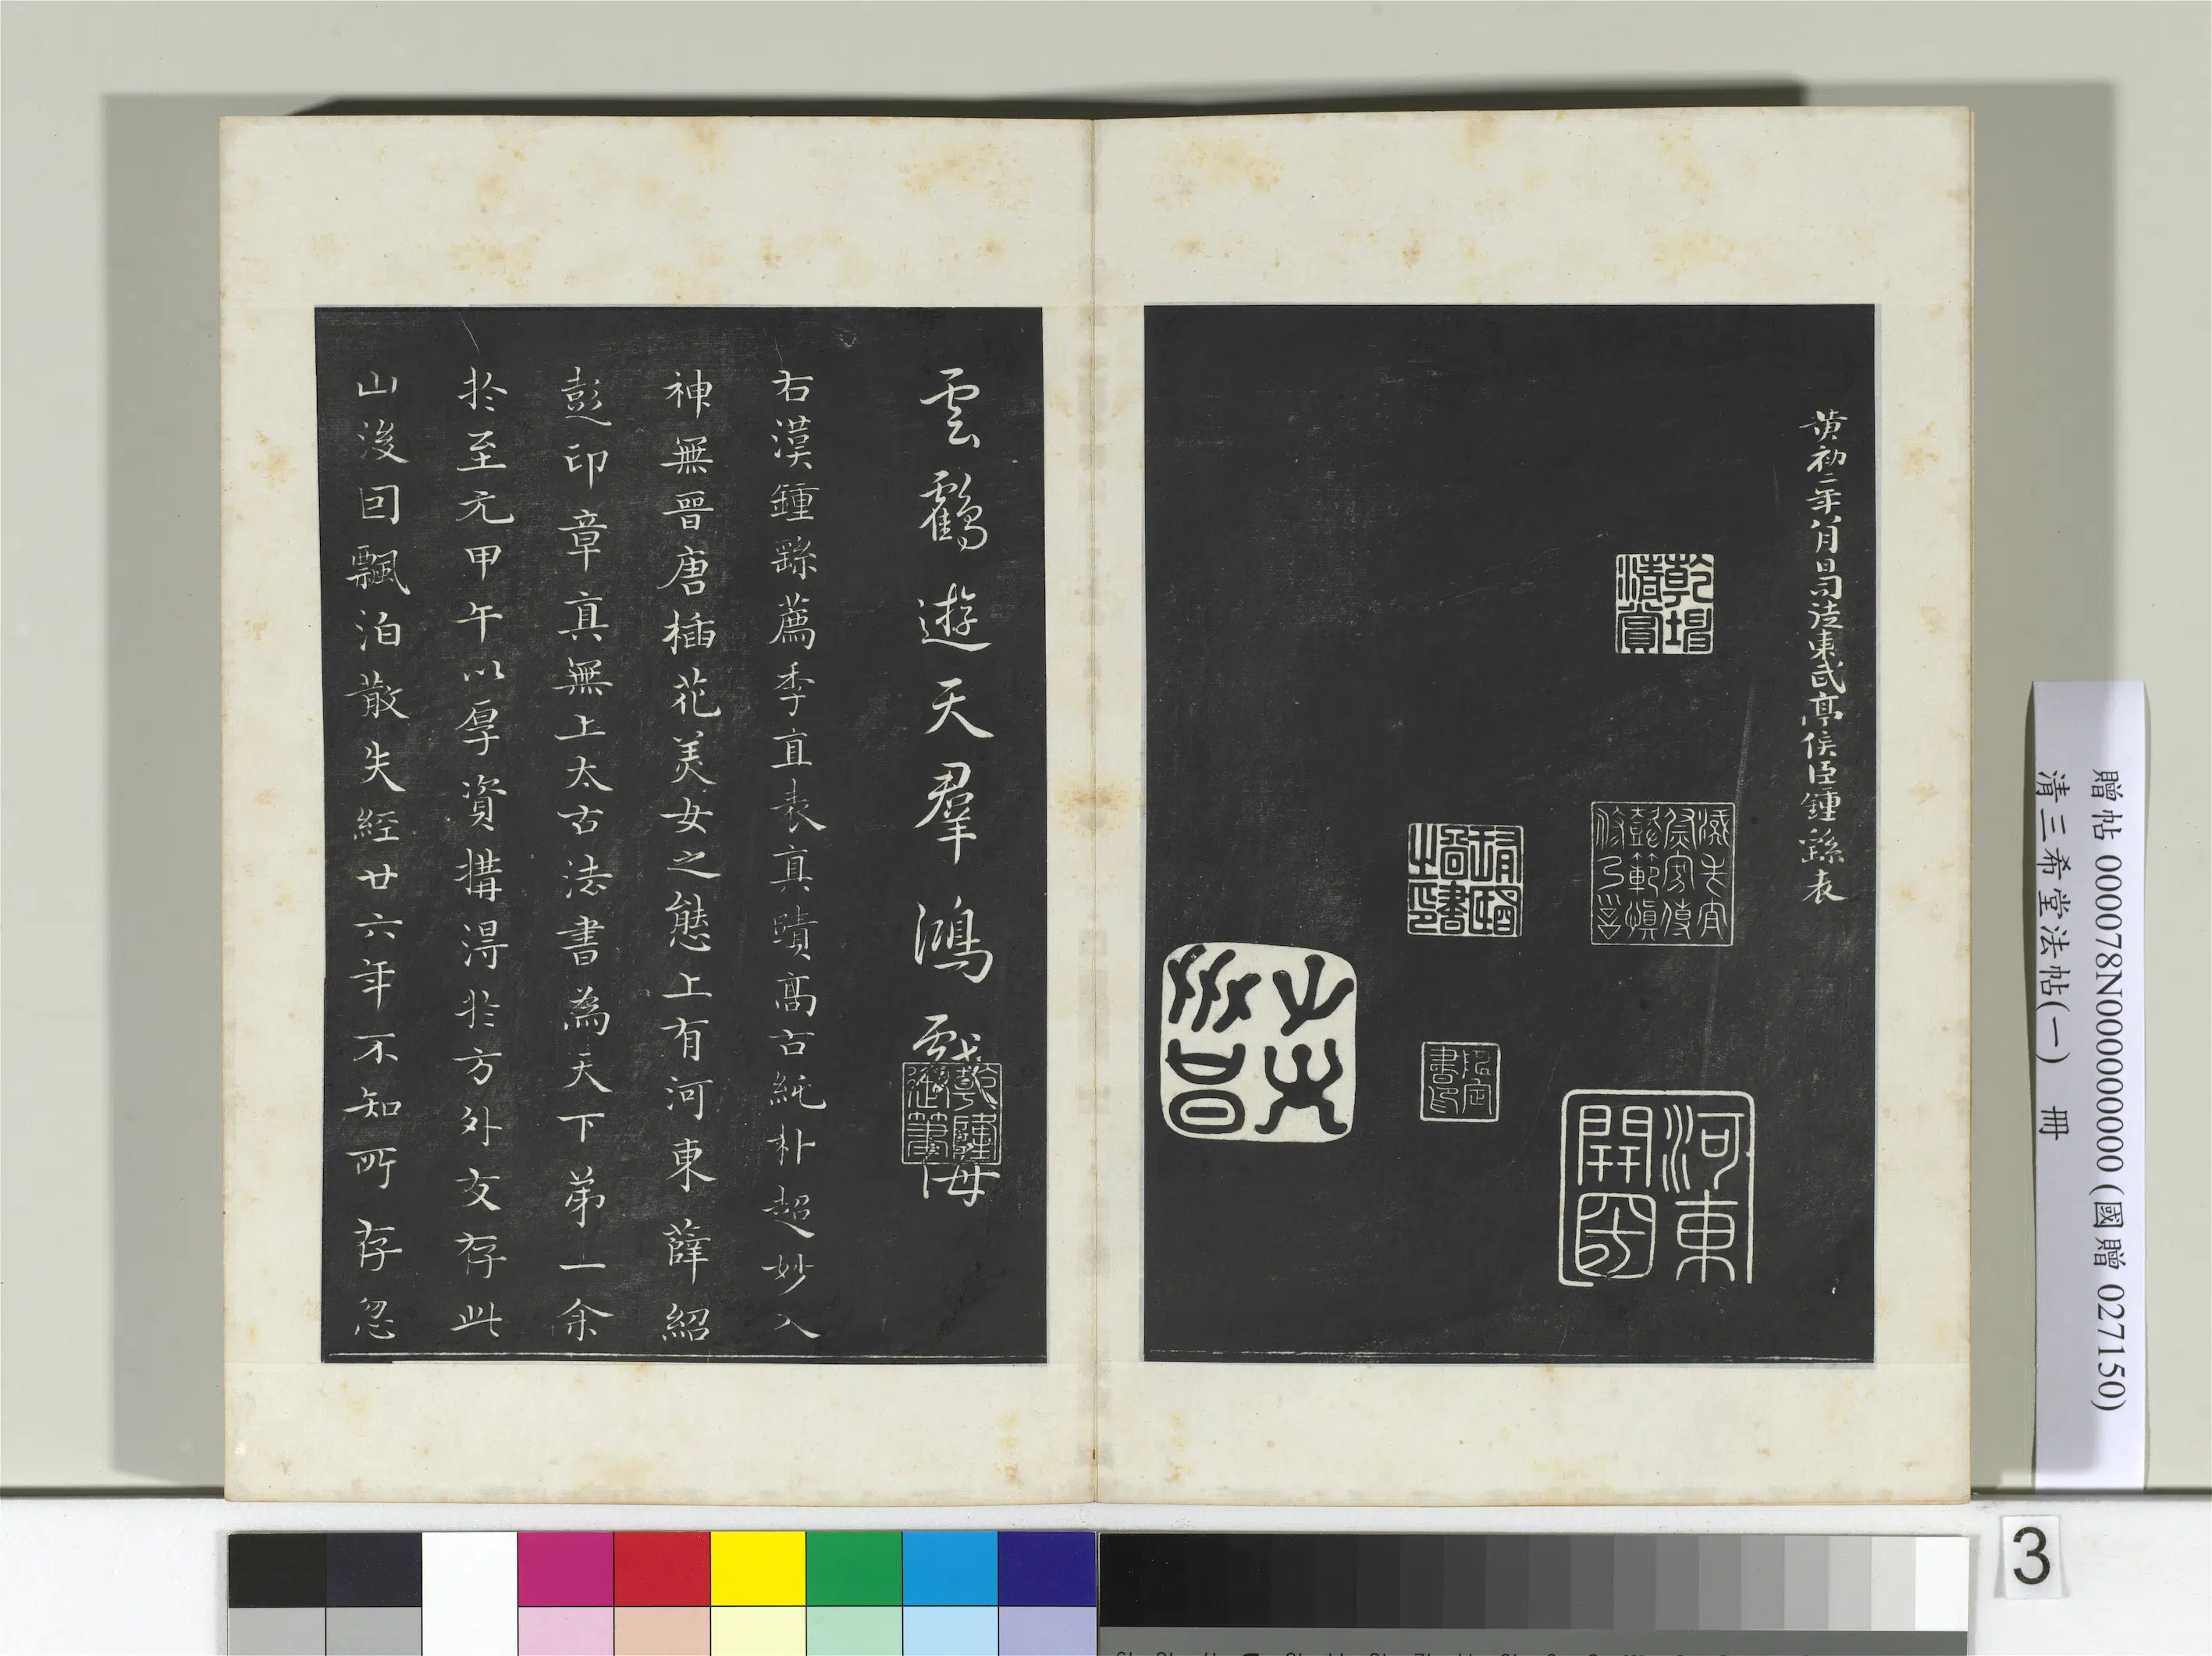 黃初二年八月日司徒東武亭侯臣鍾繇表
乾坤
清賞
河東
開國
雲鶴遊天羣鴻戲海
乾隆
御筆
右漢鍾繇薦季直表真蹟高古純朴超妙入
神無晉唐插花美女之態上有河東薛紹
彭印章真無上太古法書為天下弟一余
於至元甲午以厚資購得於方外友存此
山後回飄泊散失經廿六年不知所存忽
贈帖 000078N000000000 (國贈 027150)
清三希堂法帖(一) 冊
3